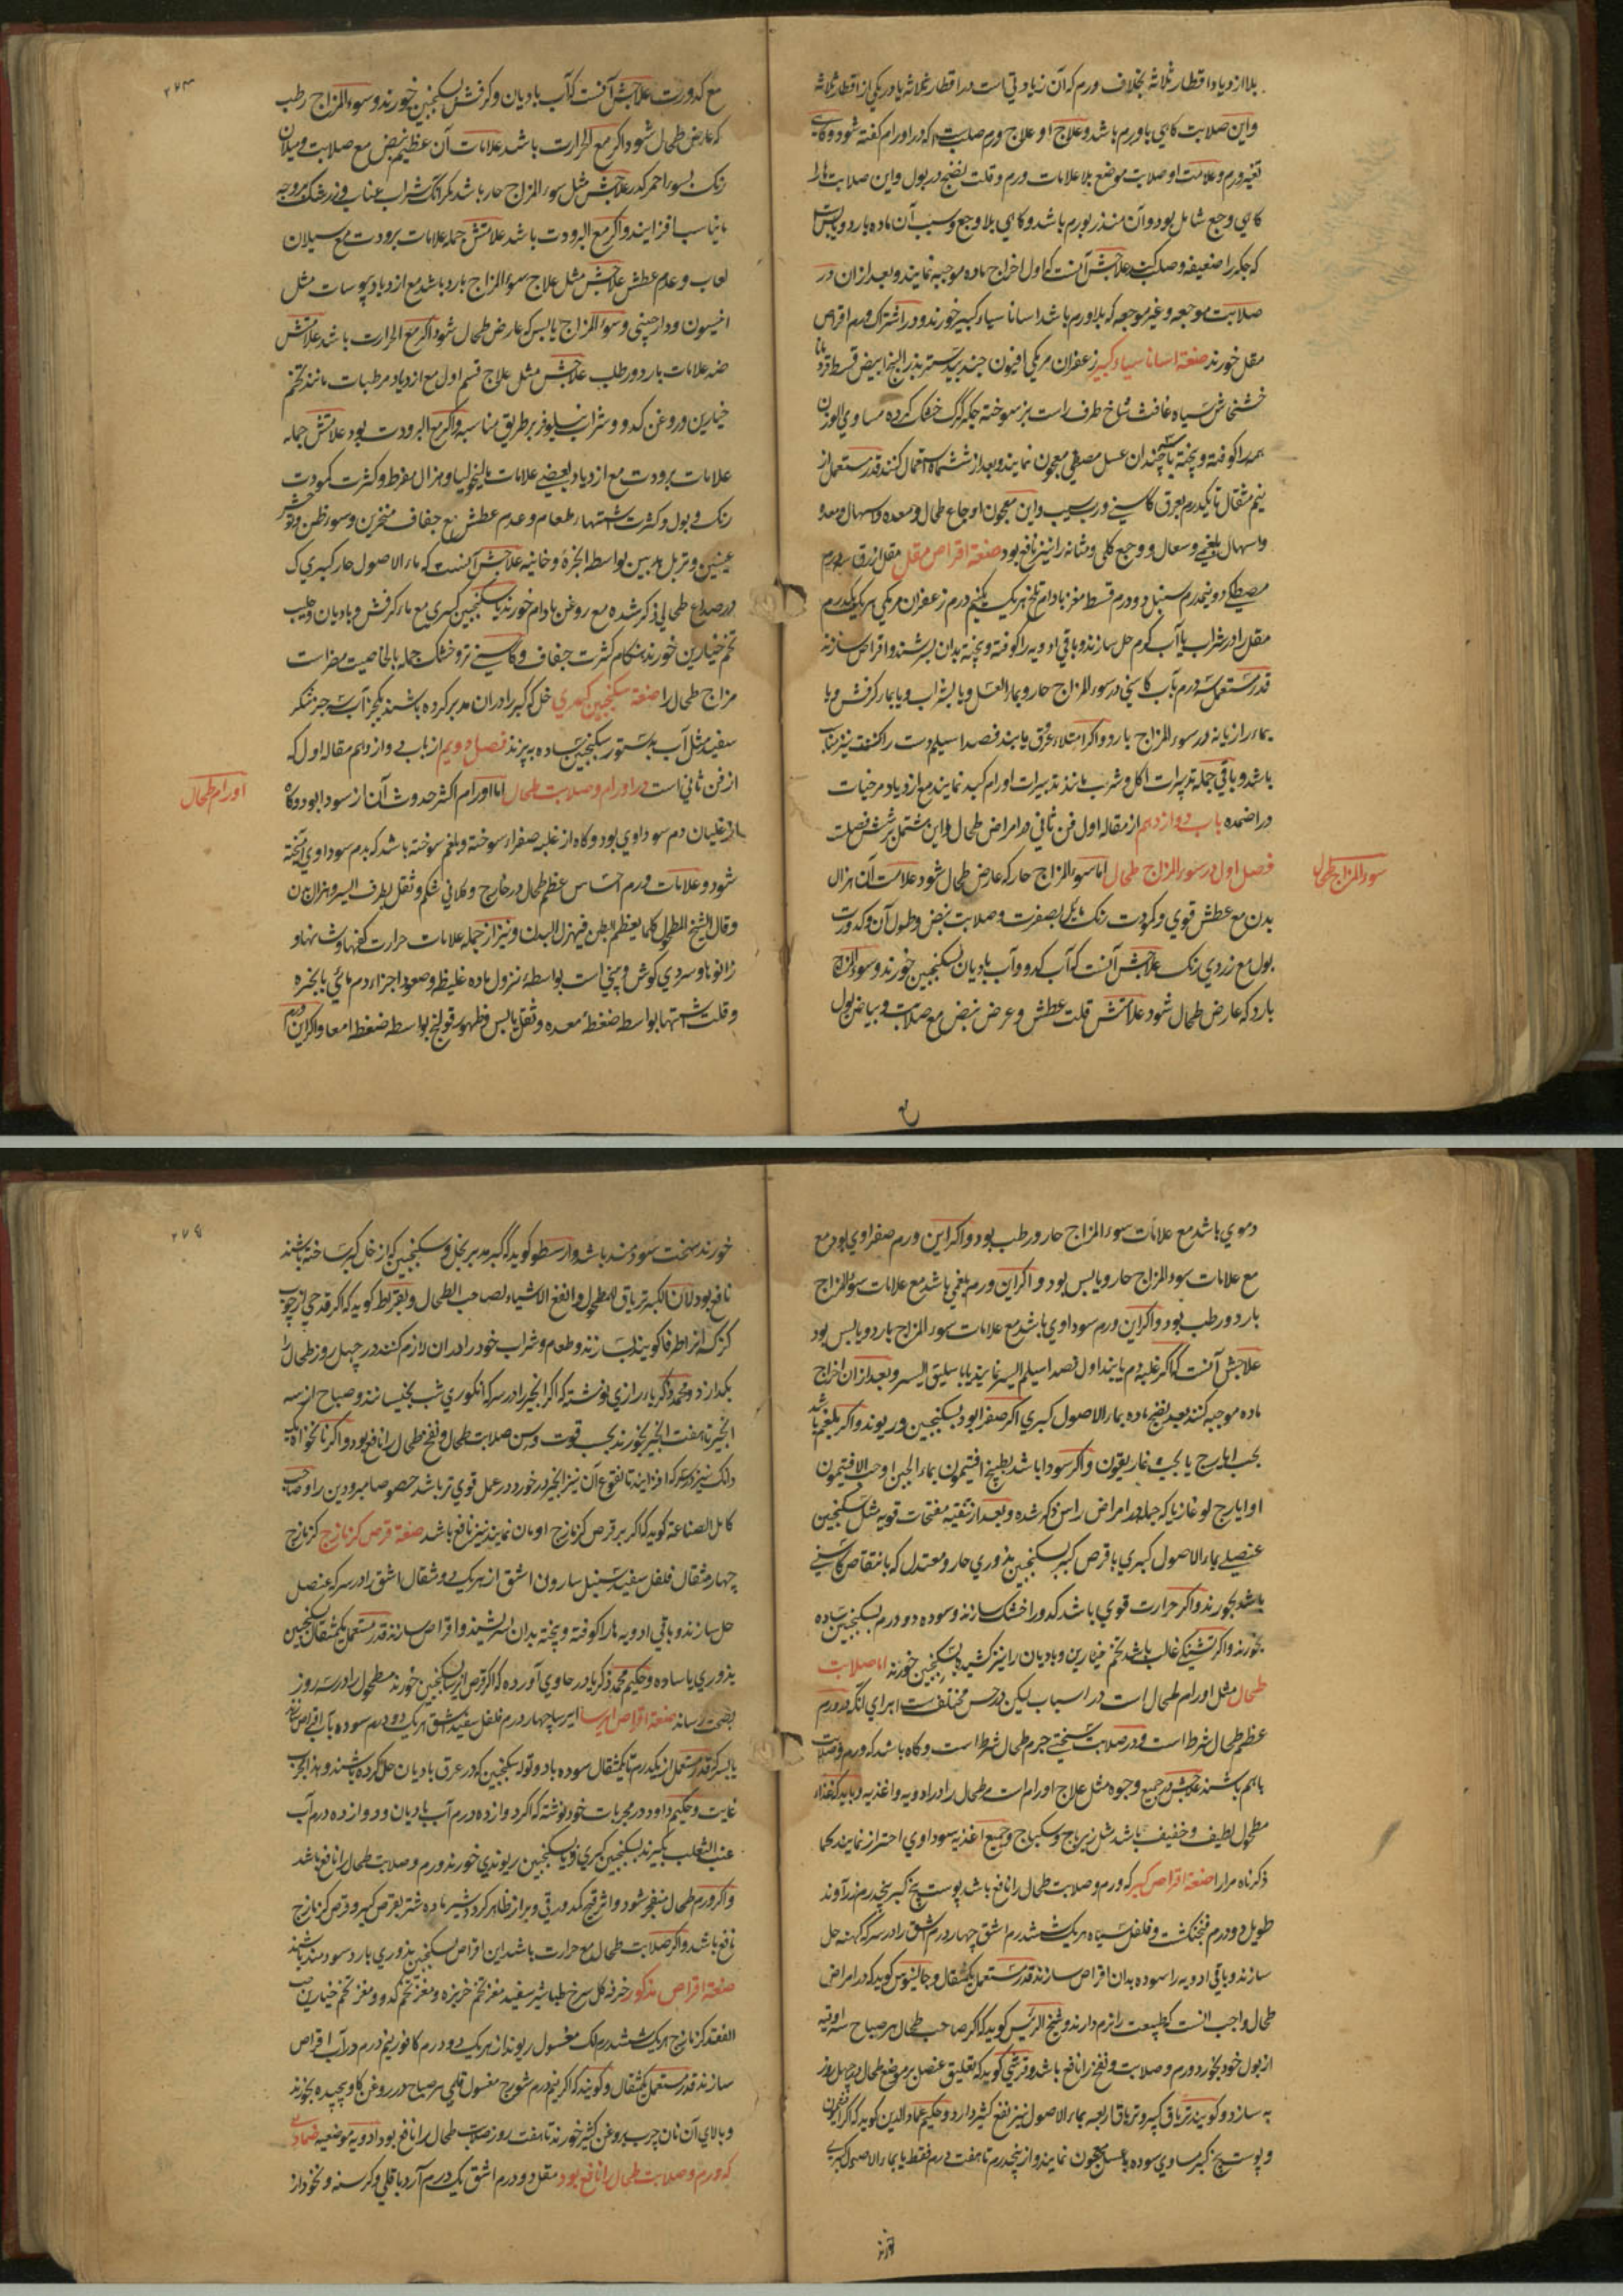 بلا ازدیاد اقطار ثلاثه بخلاف ورم که آن زیادتی است در اقطار ثلاثه یا در یکی از اقطار ثلاثه
و این صلابت کاهی با ورم باشد و علاج او علاج ورم صلب است که در اورام کفته شود و کاهی
بغیر ورم و علامت او صلابت موضع بلا علامات ورم و قلت نضج در بول و این صلابت ها را
کاهی وجع شامل بود و آن منذر بورم باشد و کاهی بلا وجع و سبب آن ماده بارد و یابس است
که جکر را ضعیف و صلب کند علاجش آنست که اول اخراج ماده موجبه نمایند و بعد از ان در
صلابت موجعه و غیر موجعه که بلا ورم باشد اساناسیاء کبیر خورند و در اشتراک ورم اقراص
مقل خورند صنعة اساناسیاء کبیر زعفران مرمکی افیون جندبیدستر بذر البنج ابیض قسط
خشخاش سیاه غافث شاخ طرف راست بز سوخته جکر کرک خشک کرده مساوی الوزن
همه را کوفته و پخته با سه چندان عسل مصفی معجون نمایند و بعد از ششماه استعمال کنند قدر مستعمل از
نیم مثقال تا یکدرم بعرق کاسنی و رب سیب و این معجون اوجاع طحال و معده و اسهال
و اسهال بلغمی و سعال و وجع کلی و مثانه را نیز نافع بود صنعة اقراص مقل مقل ازرق سه درم
مصطکی دو نیمدرم سنبل دو درم قسط مغز بادام تلخ هریک یکنیم درم زعفران مرمکی هر یک یکدرم
مقل را در شراب یا آب کرم حل سازند و باقی ادویه را کوفته و پخته بدان بسرشند و اقراص سازند
قدر مستعمل سه درم بآب کاسنی در سوء المزاج حار و بماء العسل و یا بشراب و یا بماء کرفس و یا
بماء رازیانه در سوء المزاج بارد و اکر امتلاء عروق یابند فصد اسیلم دست راست کنند نیز مناسب
باشد و باقی جمله تدبیرات اکل و شرب مانند تدبیرات اورام کبد نمایند مع ازدیاد مرخیات
در اضمده باب دوازدهم از مقاله اول فن ثانی در امراض طحال و این مشتمل بر شش فصل است
فصل اول در سوء المزاج طحال اما سوء المزاج حار که عارض طحال شود علامت آن هزال
سوء المزاج طحال
بدن مع عطش قوی و کمودت رنک مایل بصفرت و صلابت نبض و طول آن و کدورت
بول مع زردی رنک علاجش آنست که آب کدو و آب بادیان بسکنجبین خورند و سوء المزاج
بارد که عارض طحال شود علامتش قلت عطش و عرض نبض مع صلابت و بیاض بول
۲۷۳
مع کدورت علاجش آنست که آب بادیان و کرفش بسکنجبین خورند و سوء المزاج رطب
که عارض طحال شود اکر مع الحرارت باشد علامات آن عظیم نبض مع صلابت و میلان
رنک بسوی احمر کدر علاجش مثل سوء المزاج حار باشد مکر آنکه شراب عناب و زرشک بر وجه
مناسب افزایند و اکر مع البرودت باشد علامتش جمله علامات برودت مع سیلان
لعاب و عدم عطش علاجش مثل علاج سوء المزاج بارد باشد مع ازدیاد یبوسات مثل
انیسون و دارچینی و سوء المزاج یابس که عارض طحال شود اکر مع الحرارت باشد علامتش
ضد علامات بارد و رطب علاجش مثل علاج قسم اول مع ازدیاد مرطبات مانند تخم
خیارین و روغن کدو و شراب نیلوفر بر طریق مناسبه و اکر مع البرودت بود علامتش جمله
علامات برودت مع ازدیاد بعضی علامات مالیخولیا و هزال مفرط و کثرت کمودت
رنک و بول و کثرت اشتهاء طعام و عدم عطش مع جفاف منخرین و سوء ظن
عینین و تربل مدبین بواسطه ابخره دخانیه علاجش آنست که ماء الاصول حار کبیری که
در صداع طحالی ذکر شده مع روغن بادام خورند یا سکنجبین کبری مع ماء کرفش و بادیان و حلیب
تخم خیارین خورند هنکام کثرت جفاف و کاسنی تر و خشک جمله بالخاصیت مضر است
مزاج طحال را صنعة سکنجبین کبری خل که کبر را دران مدبر کرده باشند یکجز آب سه جز شکر
سفید مثل آب بدستور سکنجبین ساده بپزند فصل دویم از باب دوازدهم مقاله اول که
از فن ثانی است در اورام و صلابت طحال اما اورام اکثر حدوث آن از سودا بود و کاه
اورام طحال
از غلیان دم سوداوی بود و کاه از غلبه صفراء سوخته و بلغم سوخته باشد که بدم سوداوی آمیخته
شود و علامات ورم احساس عظم طحال در خارج و کلانی شکم و ثقل بطرف الیسر و هزال تن
و قال الشیخ المطحول کلما یعظم البطن فیهزل البدن و نیز از جمله علامات حرارت کفها و شانها و
زانوها و سردی کوش و بینی است بواسطه نزول ماده غلیظ و صعود اجزاء دم مائی با بخره
و قلت اشتها بواسطه ضغط معده و ثفل یابس و ظهور قولنج بواسطه ضغط امعا و اکر این ورم
دموی باشد مع علامات سوء المزاج حار و رطب بود و اکر این ورم صفراوی بود مع
مع علامات سوء المزاج حار و یابس بود و اکر این ورم بلغمی باشد مع علامات سوء المزاج
بارد و رطب بود و اکر این ورم سوداوی باشد مع علامات سوء المزاج بارد و یابس بود
علاجش آنست که اکر غلبه دم یابند اول فصد اسیلم الیسر نمایند یا باسلیق الیسر و بعد از ان اخراج
ماده موجبه کنند بعد نضج ماده بماء الاصول کبری اکر صفرا بود بسکنجبین و ریوند و اکر بلغم باشد
بحب ایارج یا بحب غاریقون و اکر سودا باشد بطبیخ افتیمون بماء الجبن او حب الافتیمون
او ایارج لوغازیا که جمله در امراض راس ذکر شده و بعد از تنقیه مفتحات قویه مثل سکنجبین
عنصلی بماء الاصول کبری یا قرص کبر بسکنجبین بذوری حار و معتدل که با نتقاص کاسنی
باشد بخورند و اکر حرارت قوی باشد کدو را خشک سازند و سوده دو درم بسکنجبین ساده
بخورند و اکر تشنکی غالب باشد تخم خیارین و بادیان را نیز کشیده بسکنجبین خورند اما صلابت
طحال مثل اورام طحال است در اسباب لیکن در حس مختلف است برای آنکه در ورم
عظم طحال شرط است و در صلابت سختی جرم طحال شرط است و کاه باشد که ورم و صلابت
باهم باشند علاجش در جمیع وجوه مثل علاج اورام است طحال را در ادویه و اغذیه و باید که غذاء
مطحول لطیف و خفیف باشد مثل زیرباج و سکباج و جمیع اغذیه سوداوی احتراز نمایند کما
ذکرناه مرارا صنعة اقراص کبر که ورم و صلابت طحال را نافع باشد پوست بیخ کبر پنجدرم زرآوند
طویل دو درم فنجنکشت و فلفل سیاه هریک ششدرم اشق چهار درم اشق را در سرکه کهنه حل
سازند و باقی ادویه را سوده بدان اقراص سازند قدر مستعمل یکمثقال و جالینوس کوید که در امراض
طحال واجب آنست که طبیعت را نرم دارند و شیخ الرئیس کوید که اکر صاحب طحال هر صباح سه اوقیه
از بول خود بخورد ورم و صلابت و نفخ را نافع باشد و قرشی کوید که تعلیق عنصل بر موضع طحال در چهل روز
به سازد و کویند تریاق کبیر و تریاق اربعه بماء الاصول نیز نفع کثیر دارد و حکیم عماد الدین کوید که اکر افتیمون
و پوست بیخ کبر مساوی سوده با عسل معجون نمایند و از پنجدرم تا هفت درم فقط یا بماء الاصول کبری
خورند سخت سودمند باشد و ارسطو کوید که کبر مدبر بخل و سکنجبین که از خل کبر ساخته باشند
نافع بود لان الکبر تریاق المطحول و انفع الاشیاء لصاحب الطحال و بقراط کوید که اکر قدحی از چوب
کز که انرا طرفا کویند بسازند و طعام و شراب خود را دران لازم کنند در چهل روز طحال را
بکدازد و محمد زکریاء رازی نوشته که اکر انجیر را در سرکه انکوری شب بخیسانند و صباح از سه
انجیر تا هفت انجیر بخورند بحسب قوت و سن صلابت طحال و نفخ طحال را نافع بود و اکر نانخواه یک
دانک نیز در سرکه افزایند تا نقوع آن نیز انجیر در خورد در عمل قوی تر باشد خصوصا مبرودین را و صاحب
کامل الصناعة کوید که اکر بر قرص کزمازج ادمان نمایند نیز نافع باشد صنعة قرص کزمازج کزمازج
چهار مثقال فلفل سفید سنبل اسارون اشق از هریک دو مثقال اشق را در سرکه عنصل
حل سازند و باقی ادویه ها را کوفته و پخته بدان بسرشند و اقراص سازند قدر مستعمل یکمثقال بسکنجبین
بذوری یا ساده و حکیم محمد ذکریا در حاوی آورده که اکر قرص ایرسا بسکنجبین خورند مطحول را در سه روز
بصحت رساند صنعة اقراص ایرسا ایرسا چهار درم فلفل سفید اشق هریک دو درم سوده بآب اقراص سازند
یا بسرکه قدر مستعمل از یکدرم تا یکمثقال سوده با دو توله سکنجبین که در عرق بادیان حل کرده باشند و هذا مجرب
غایت و حکیم داود در مجربات خود نوشته که اکر دوازده درم آب بادیان و دوازده درم آب
عنب الثعلب بکیرند بسکنجبین کبری و یا سکنجبین ریوندی خورند ورم و صلابت طحال را نافع باشد
و اکر ورم طحال منفجر شود و اثر قیح کدورتی و براز ظاهر کردد شیر ماده شتر بقرص کبر و قرص کزمازج
نافع باشد و اکر صلابت طحال مع حرارت باشد این اقراص بسکنجبین بذوری بارد سودمند باشند
صنعة اقراص مذکور خرفه کل سرخ طباشیر سفید مغز تخم خربزه و مغز تخم کدو و مغز تخم خیارین حب
الفقد کزمازج هریک ششدرم لک مغسول ریوند از هریک دو درم کافور نیم درم در آب اقراص
سازند قدر مستعمل یکمثقال و کویند که اکر نیم درم شورج مغسول قلمی هر صباح در روغن کاو پیچیده بخورند
و بالای آن نان چرب بروغن کثیر خورند تا هفت روز صلابت طحال را نافع بود ادویه موضعیه ضمادی
که ورم و صلابت طحال را نافع بود مقل دو درم اشق یک درم آرد باقلی و کرسنه و نخود از